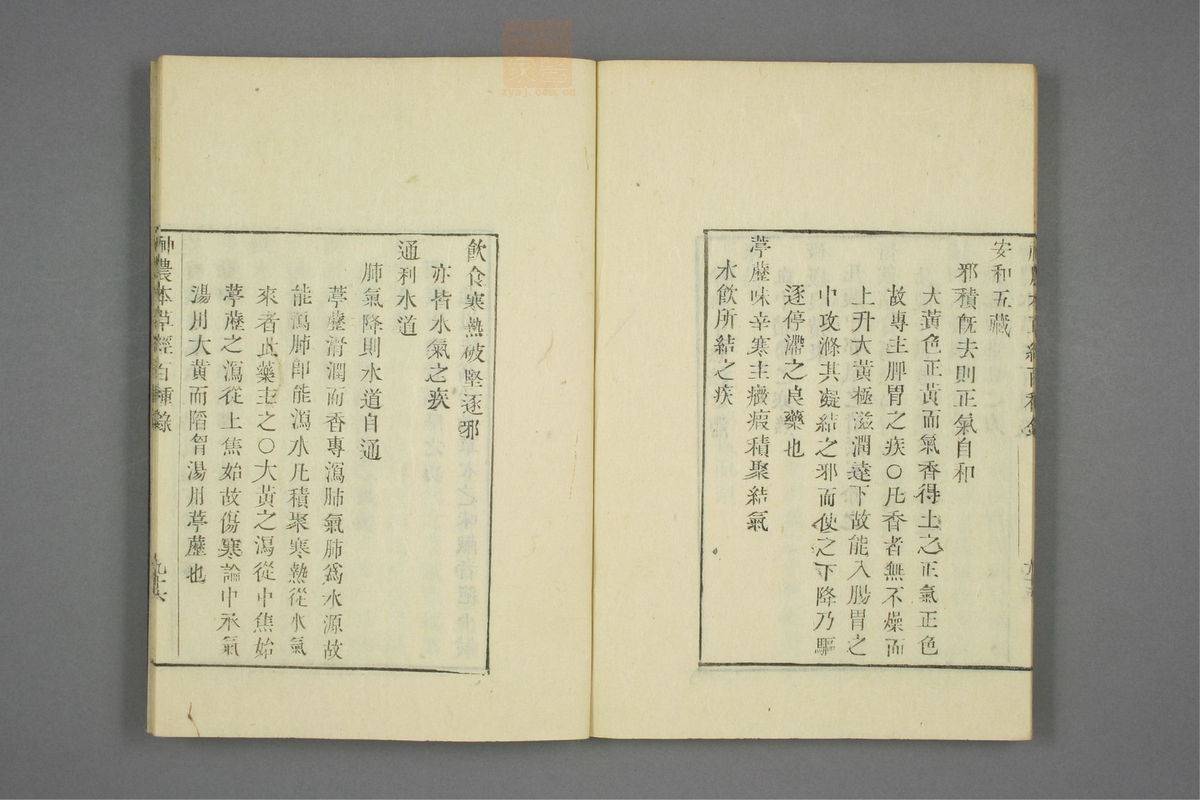 安和五藏
邪積旣去則正氣自和
大黃色正黃而氣香得土之正氣正色
故專主脾胃之疾○凡香者無不燥而
上升大黃極滋潤達下故能入腸胃之
中攻滌其凝結之邪而使之下降乃驅
逐停滯之良藥也
葶藶味辛寒主癥瘕積聚結氣
水飲所結之疾
飮食寒熱破堅逐邪
亦皆水氣之疾
通利水道
肺氣降則水道自通
葶藶滑潤而香專瀉肺氣肺爲水源故
能瀉肺卽能瀉水凡積聚寒熱從水氣
來者此藥主之○大黃之瀉從中焦始
葶藶之瀉從上焦始故傷寒論中承氣
湯用大黃而陷胷湯用葶藶也
神農本草經百種錄
zysj.com.cn